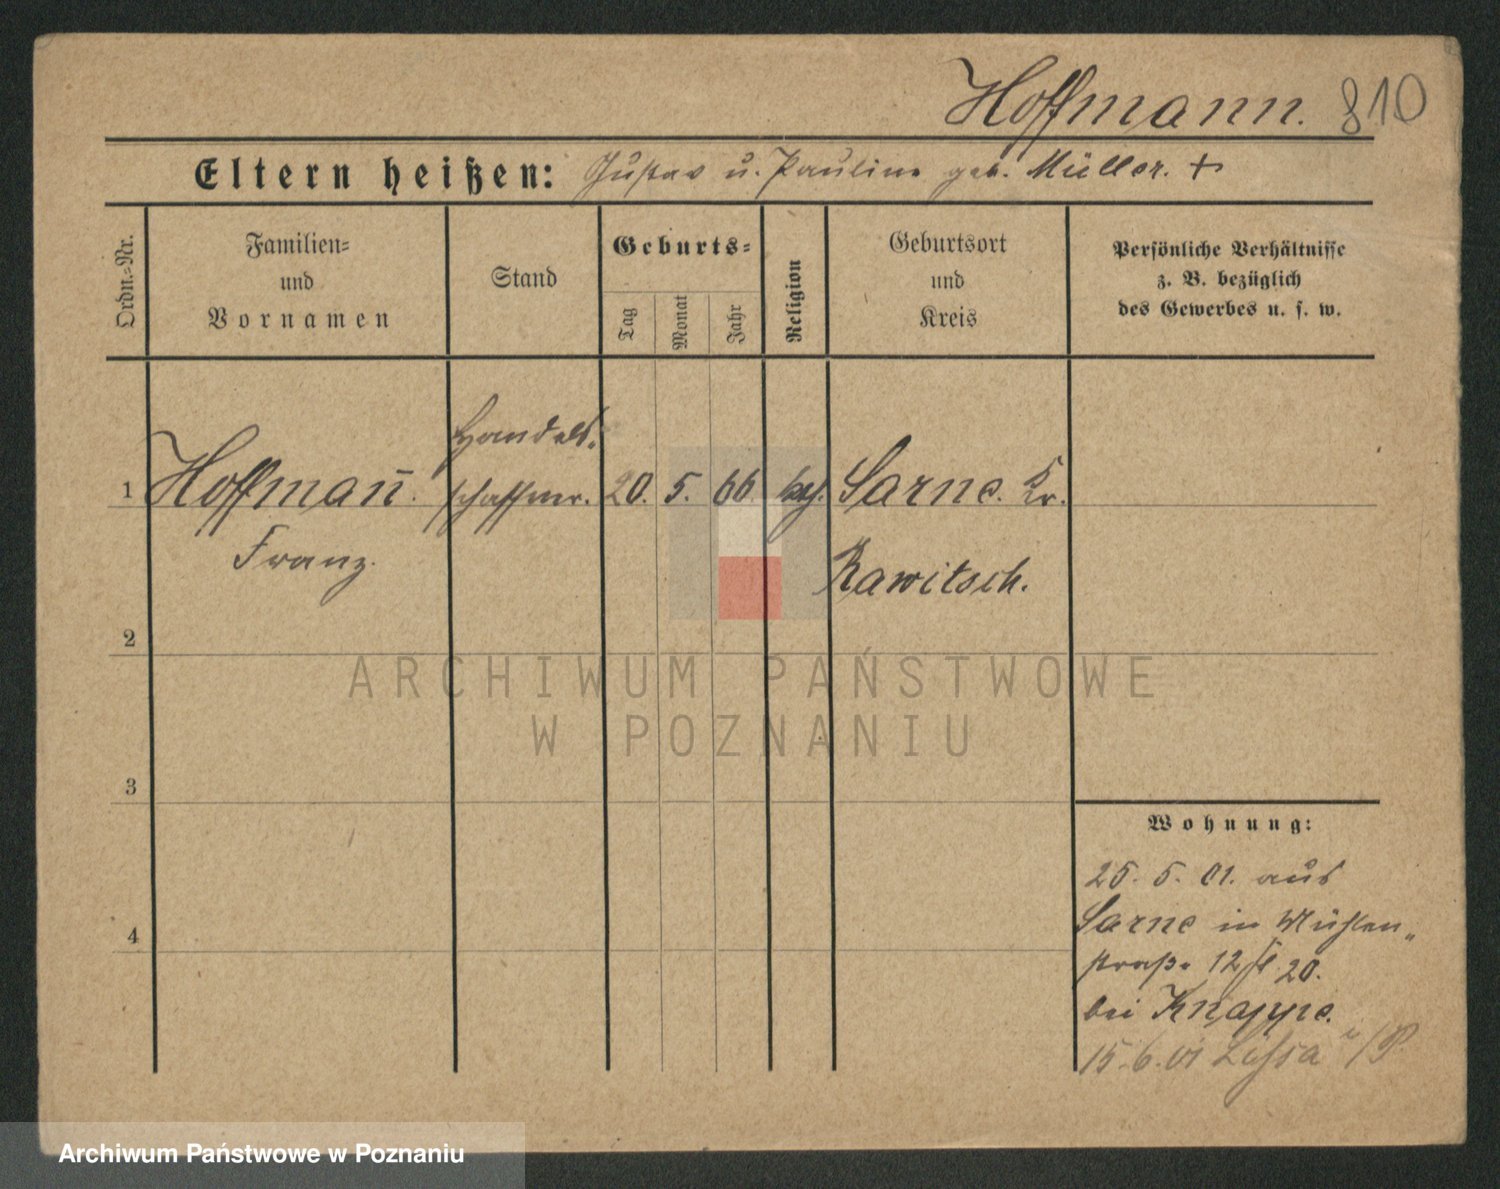 Hoffmann. 810
Eltern heißen: Gustav u. Pauline geb. Müller. +
Ordn.-Nr.
Familien-
und
Vornamen
Stand
Geburts-
Tag
Monat
Jahr
Religion
Geburtsort
und
Kreis
Persönliche Verhältnisse
z. B. bezüglich
des Gewerbes u. s. w.
Handels-
1 Hoffman̄. 20. 5. 66 Sarne. Kr.
Franz. Rawitsch.
2
ARCHIWUM PAŃSTWOWE
W POZNANIU
3
Wohnung:
25. 5. 01. aus
4
Sarne in Mühlen-
straße 12 20.
bei Knappe.
15.6.01 Lissa i/P.
Archiwum Państwowe w Poznaniu